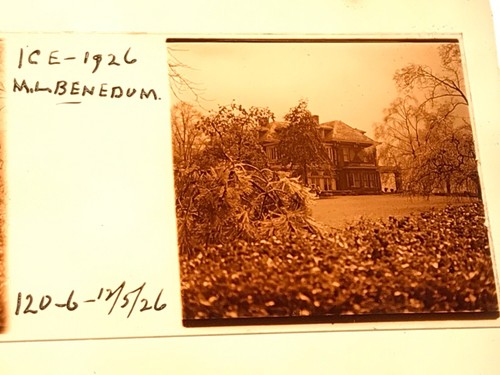 ICE-1926
M.L. BENEDUM.
120-6-12/5/26